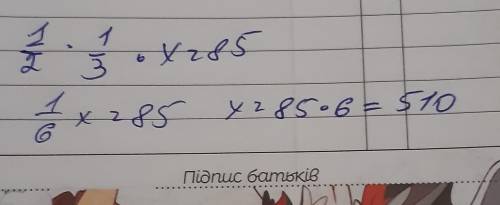 1/2 · 1/3 · x = 85
1/6 x = 85 x = 85 · 6 = 510
Підпис батьків